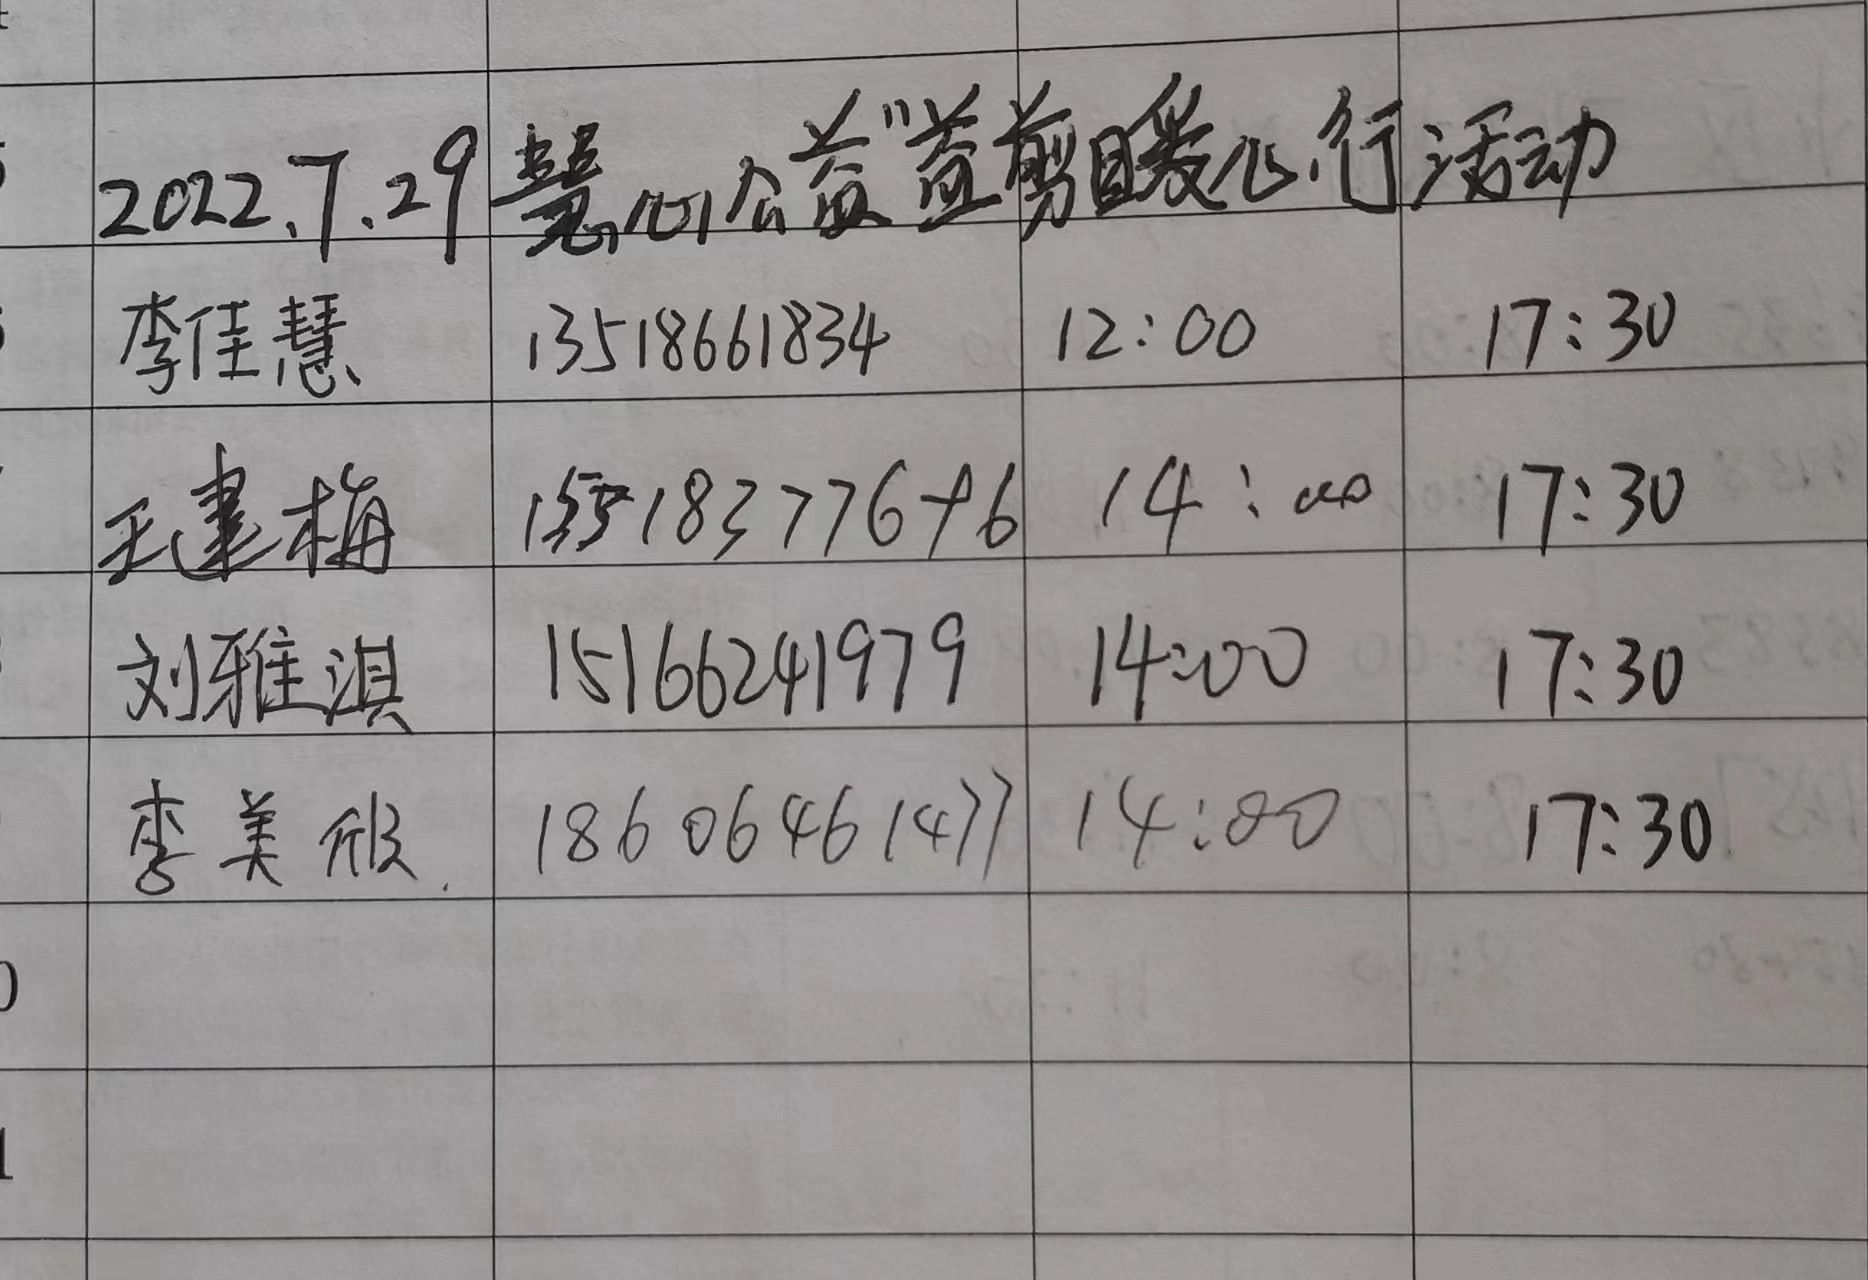 2022.7.29 慧心公益"益剪暖心行活动
李佳慧 13518661834 12:00 17:30
王建梅 14:00 17:30
刘雅淇 15166241979 14:00 17:30
李美欣 18606461477 14:00 17:30